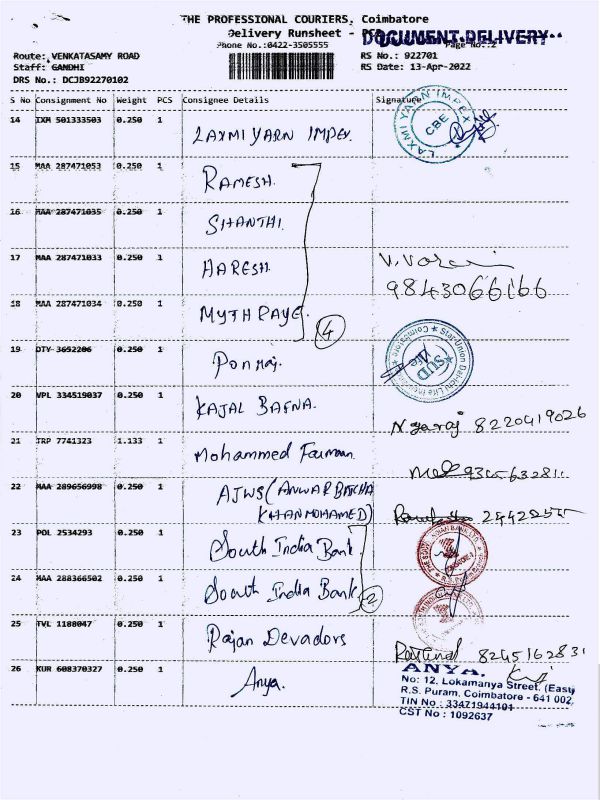 THE PROFESSIONAL COURIERS. Coimbatore
Delivery Runsheet - DOCUMENT-DELIVERY
Phone No.:0422-3505555 Page No.:2
Route: VENKATASAMY ROAD RS No.: 922701
Staff: GANDHI RS Date: 13-Apr-2022
DRS No.: DCJB92270102
S No Consignment No Weight PCS Consignee Details Signature
14 IXM 501333503 0.250 1 LAXMI YARN IMPEX. LAXMI YARN IMPEX CBE
15 MAA 287471053 0.250 1 RAMESH.
16 MAA 287471035 0.250 1 SHANTHI.
17 MAA 287471033 0.250 1 HARESH.
9843066166
18 MAA 287471034 0.250 1 MYTHRAYE. 4
19 DTY 3692206 0.250 1 Ponraj. SUD Life Star Union Dai-ichi Life Insurance Coimbatore
20 VPL 334519037 0.250 1 KAJAL BAFNA.
8220419026
21 TRP 7741323 1.133 1 Mohammed
22 MAA 289656998 0.250 1 AJWS (ANWAR BATCHA
KHANMOHAMED)
23 POL 2534293 0.250 1 South India Bank
24 MAA 288366502 0.250 1 South India Bank 2
25 TVL 1188047 0.250 1 Rajan Devadors
8245162831
26 KUR 608370327 0.250 1 Anya. ANYA.
No: 12, Lokamanya Street, (East)
R.S. Puram, Coimbatore - 641 002.
TIN No : 33471944101
CST No : 1092637